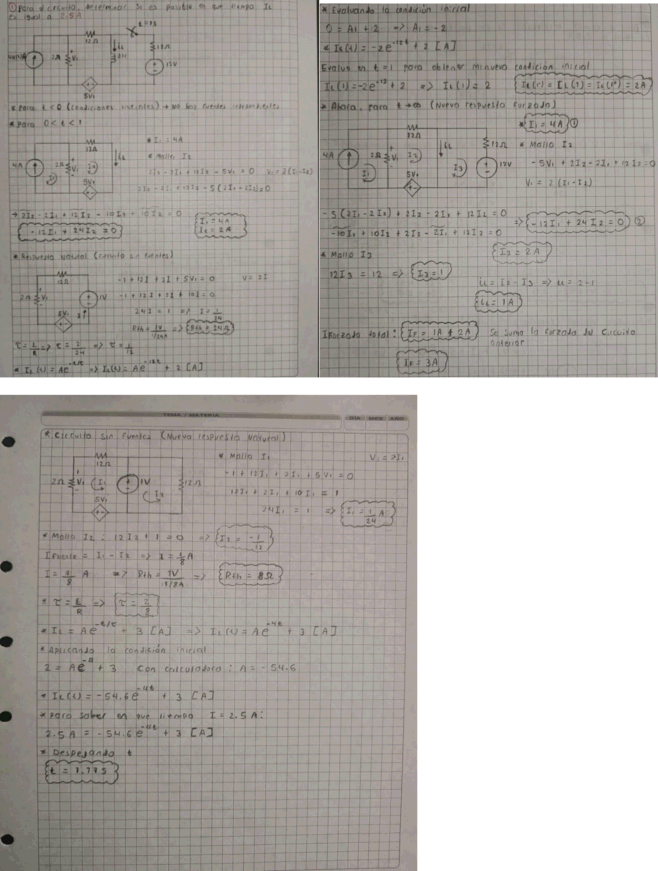 ① Para el circuito, determinar si es posible en que tiempo IL
es igual a 2.5A
t=1s
12Ω
4u(t)A
2Ω
V1
IL
2H
12Ω
12V
5V1
* Para t<0 (Condiciones iniciales) → No hay fuentes independientes
* Para 0<t<1
12Ω
* I1 = 4A
* Malla I2
4A
2Ω
V1
IL
5V1
2I2 - 2I1 + 12I2 - 5V1 = 0
V1 = 2(I1-I2)
2I2 - 2I1 + 12I2 - 5(2I1-2I2)=0
→ 2I2 - 2I1 + 12I2 - 10I1 + 10I2 = 0
-12I1 + 24I2 = 0
I1 = 4A
I2 = 2A
* Respuesta Natural (Circuito sin fuentes)
12Ω
2Ω
V1
1V
5V1
-1 + 12I + 2I + 5V1 = 0
V = 2I
-1 + 12I + 2I + 10I = 0
24I = 1 => I = 1/24
Rth = 1V/1/24A => Rth = 24Ω
τ = L/R => τ = 2/24 => τ = 1/12
* IL(t) = Ae^-t/τ => IL(t) = Ae^-12t + 2 [A]
* Evaluando la condición inicial
0 = A1 + 2 => A1 = -2
* IL(t) = -2e^-12t + 2 [A]
Evaluo en t = 1 para obtener mi nueva condición inicial
IL(1) = -2e^-12 + 2 => IL(1) = 2
IL(1-) = IL(1) = IL(1+) = 2A
* Ahora, para t→∞ (Nueva respuesta forzada)
* I1 = 4A ①
12Ω
* Malla I2
4A
2Ω
V1
I1
I2
IL
I3
12Ω
12V
5V1
-5V1 + 2I2 - 2I1 + 12I2 = 0
V1 = 2(I1-I2)
-5(2I1-2I2) + 2I2 - 2I1 + 12I2 = 0
-10I1 + 10I2 + 2I2 - 2I1 + 12I2 = 0
=> -12I1 + 24I2 = 0 ②
I2 = 2A
* Malla I3
12I3 = 12 => I3 = 1
iL = I2 - I3 => iL = 2-1
iL = 1A
IForzada total: IF = 1A + 2A
Se suma la forzada del circuito
anterior
IF = 3A
TEMA / MATERIA
DIA MES AÑO
* Circuito sin fuentes (Nueva respuesta Natural)
12Ω
2Ω
V1
I1
1V
I2
12Ω
5V1
* Malla I1
V1 = 2I1
-1 + 12I1 + 2I1 + 5V1 = 0
12I1 + 2I1 + 10I1 = 1
24I1 = 1 => I1 = 1/24 A
* Malla I2: 12I2 + 1 = 0 => I2 = -1/12
IFuente = I1 - I2 => I = 1/8 A
I = 1/8 A => Rth = 1V/1/8A => Rth = 8Ω
* τ = L/R => τ = 2/8
* IL = Ae^-t/τ + 3 [A] => IL(t) = Ae^-4t + 3 [A]
* Aplicando la condición inicial
2 = Ae^-4 + 3 Con calculadora: A = -54.6
* IL(t) = -54.6e^-4t + 3 [A]
* Para saber en que tiempo I = 2.5A:
2.5A = -54.6e^-4t + 3 [A]
* Despejando t
t = 1.17s